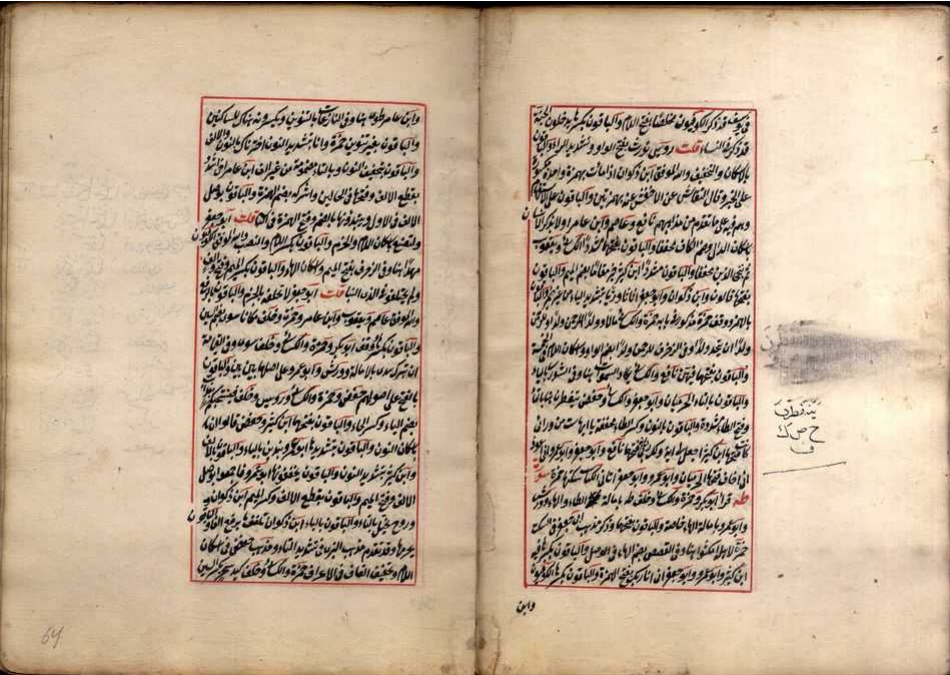 في يوسف قد ذكر الكوفيون مخلصا بفتح اللام والباقون بكسرها يدخلون الجنة
قد ذكر في النساء قلت رويس نورث بفتح الواو وتشديد الراء والباقون
بالاسكان والتخفيف والله الموفق ابن ذكوان اذا ما مت بهمزة واحدة مكسورة
على الخبر وقال النقاش عن الاخفش عنه بهمزتين والباقون على الاستفهام
وهم فيه على ما تقدم من مذاهبهم نافع وعاصم وابن عامر اولا يذكر الانسان
باسكان الذال وضم الكاف مخففا والباقون بفتحهما مشددا الكسائي ويعقوب
ثم ننجي الذين مخففا والباقون مشددا ابن كثير خير مقاما بضم الميم والباقون
بفتحها قالون وابن ذكوان وابو جعفر اثاثا وريا بتشديد الياء من غير همز والباقون
بالهمز ووقف حمزة مذكور في بابه حمزة والكسائي مالا وولدا وولدا وللرحمن
ولدا ان يتخذ ولدا وفي الزخرف للرحمن ولد بضم الواو واسكان اللام في الخمسة
والباقون بفتحهما فيهن نافع والكسائي يكاد السموات هنا وفي الشورى بالياء
والباقون بالتاء الحرميان وابو جعفر والكسائي وحفص يتفطرن بالتاء
وفتح الطاء مشددة والباقون بالنون وكسر الطاء مخففة ياءاتها ست من ورائي
فتحها ابن كثير اجعل لي اية ربي انه فتحهما نافع وابو جعفر وابو عمرو اني اعوذ
اني اخاف فتحها الحرميان وابو عمرو وابو جعفر اتاني الكتاب سكنها حمزة سورة
طه قرأ ابو بكر وحمزة والكسائي وخلف طه بامالة الطاء والهاء وورش
وابو عمرو بامالة الهاء خاصة والباقون بفتحهما وذكر مذهب ابي جعفر في السكت
حمزة لاهله امكثوا هنا وفي القصص بضم الهاء في الوصل والباقون بكسرها فيه
ابن كثير وابو عمرو وابو جعفر اني انا ربك بفتح الهمزة والباقون بكسرها الكوفيون
وابن
ينفطرن
ح ص ك
ف
وابن عامر طوى هنا وفي النازعات بالتنوين ويكسرونه هناك للساكنين
والباقون بغير تنوين حمزة وانا بتشديد النون اخترناك بالنون والالف
والباقون بتخفيف النون وبالتاء مضمومة من غير الف ابن عامر اخي اشدد
بقطع الالف وفتحها في الحالين واشركه بضم الهمزة والباقون بوصل
الالف في الاول ويبتدونها بالضم وفتح الهمزة في الثاني قلت ابو جعفر
ولتصنع باسكان اللام والجزم والباقون بكسر اللام والنصب والله الموفق الكوفيون
مهدا هنا وفي الزخرف بفتح الميم واسكان الهاء والباقون بكسر الميم وفتح الهاء والف
ولم يختلفوا في الذي في النبأ قلت ابو جعفر لا نخلفه بالجزم والباقون بالرفع
والله الموفق عاصم ويعقوب وابن عامر وحمزة وخلف مكانا سوى بضم السين
والباقون بكسرها ووقف ابو بكر وحمزة والكسائي وخلف سوى وفي القيامة
ان يترك سدى بالامالة وورش وابو عمرو على اصلهما بين بين والباقون
بالفتح على اصولهم حفص وحمزة والكسائي ورويس وخلف فيسحتكم
بضم الياء وكسر الحاء والباقون بفتحهما ابن كثير وحفص قالوا ان
باسكان النون والباقون بتشديدها ابو عمرو هذين بالياء والباقون بالالف
وابن كثير بتشديد النون والباقون بتخفيفها ابو عمرو فاجمعوا بوصل
الالف وفتح الميم والباقون بقطع الالف وكسر الميم ابن ذكوان
وروح تخيل بالتاء والباقون بالياء ابن ذكوان تلقف برفع الفاء والباقون
بجزمها وقد تقدم مذهب البزي في تشديد التاء ومذهب حفص في اسكان
اللام وتخفيف القاف في الاعراف حمزة والكسائي وخلف كيد سحر بكسر السين
64